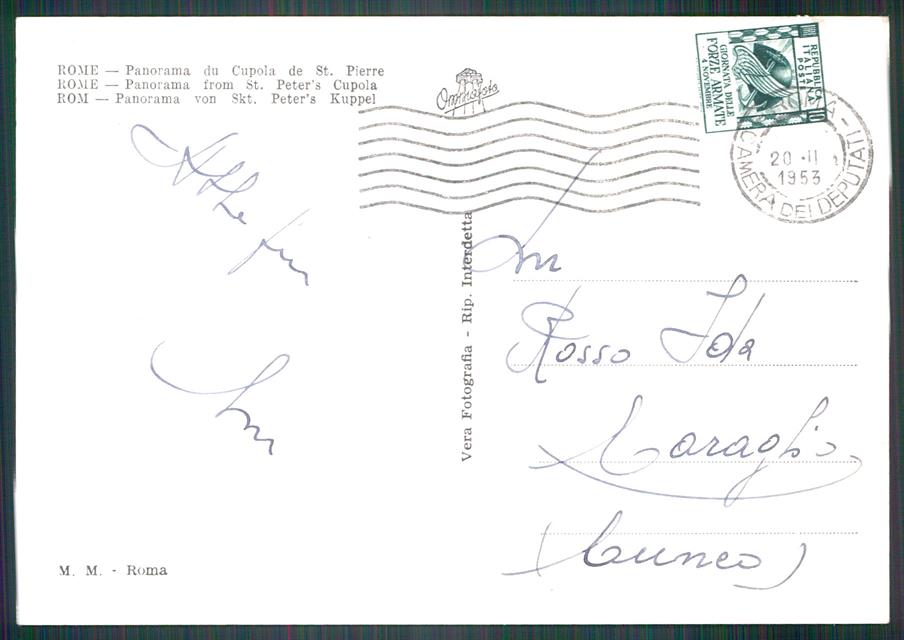 ROME — Panorama du Cupola de St. Pierre
ROME — Panorama from St. Peter's Cupola
ROM — Panorama von Skt. Peter's Kuppel
Omniafoto
REPUBBLICA
ITALIANA
POSTE
10
GIORNATA DELLE
FORZE ARMATE
4 NOVEMBRE
20 · 11
1953
CAMERA DEI DEPUTATI
Vera Fotografia - Rip. Interdetta
Rosso Ida
Caraglio
(Cuneo)
M. M. - Roma